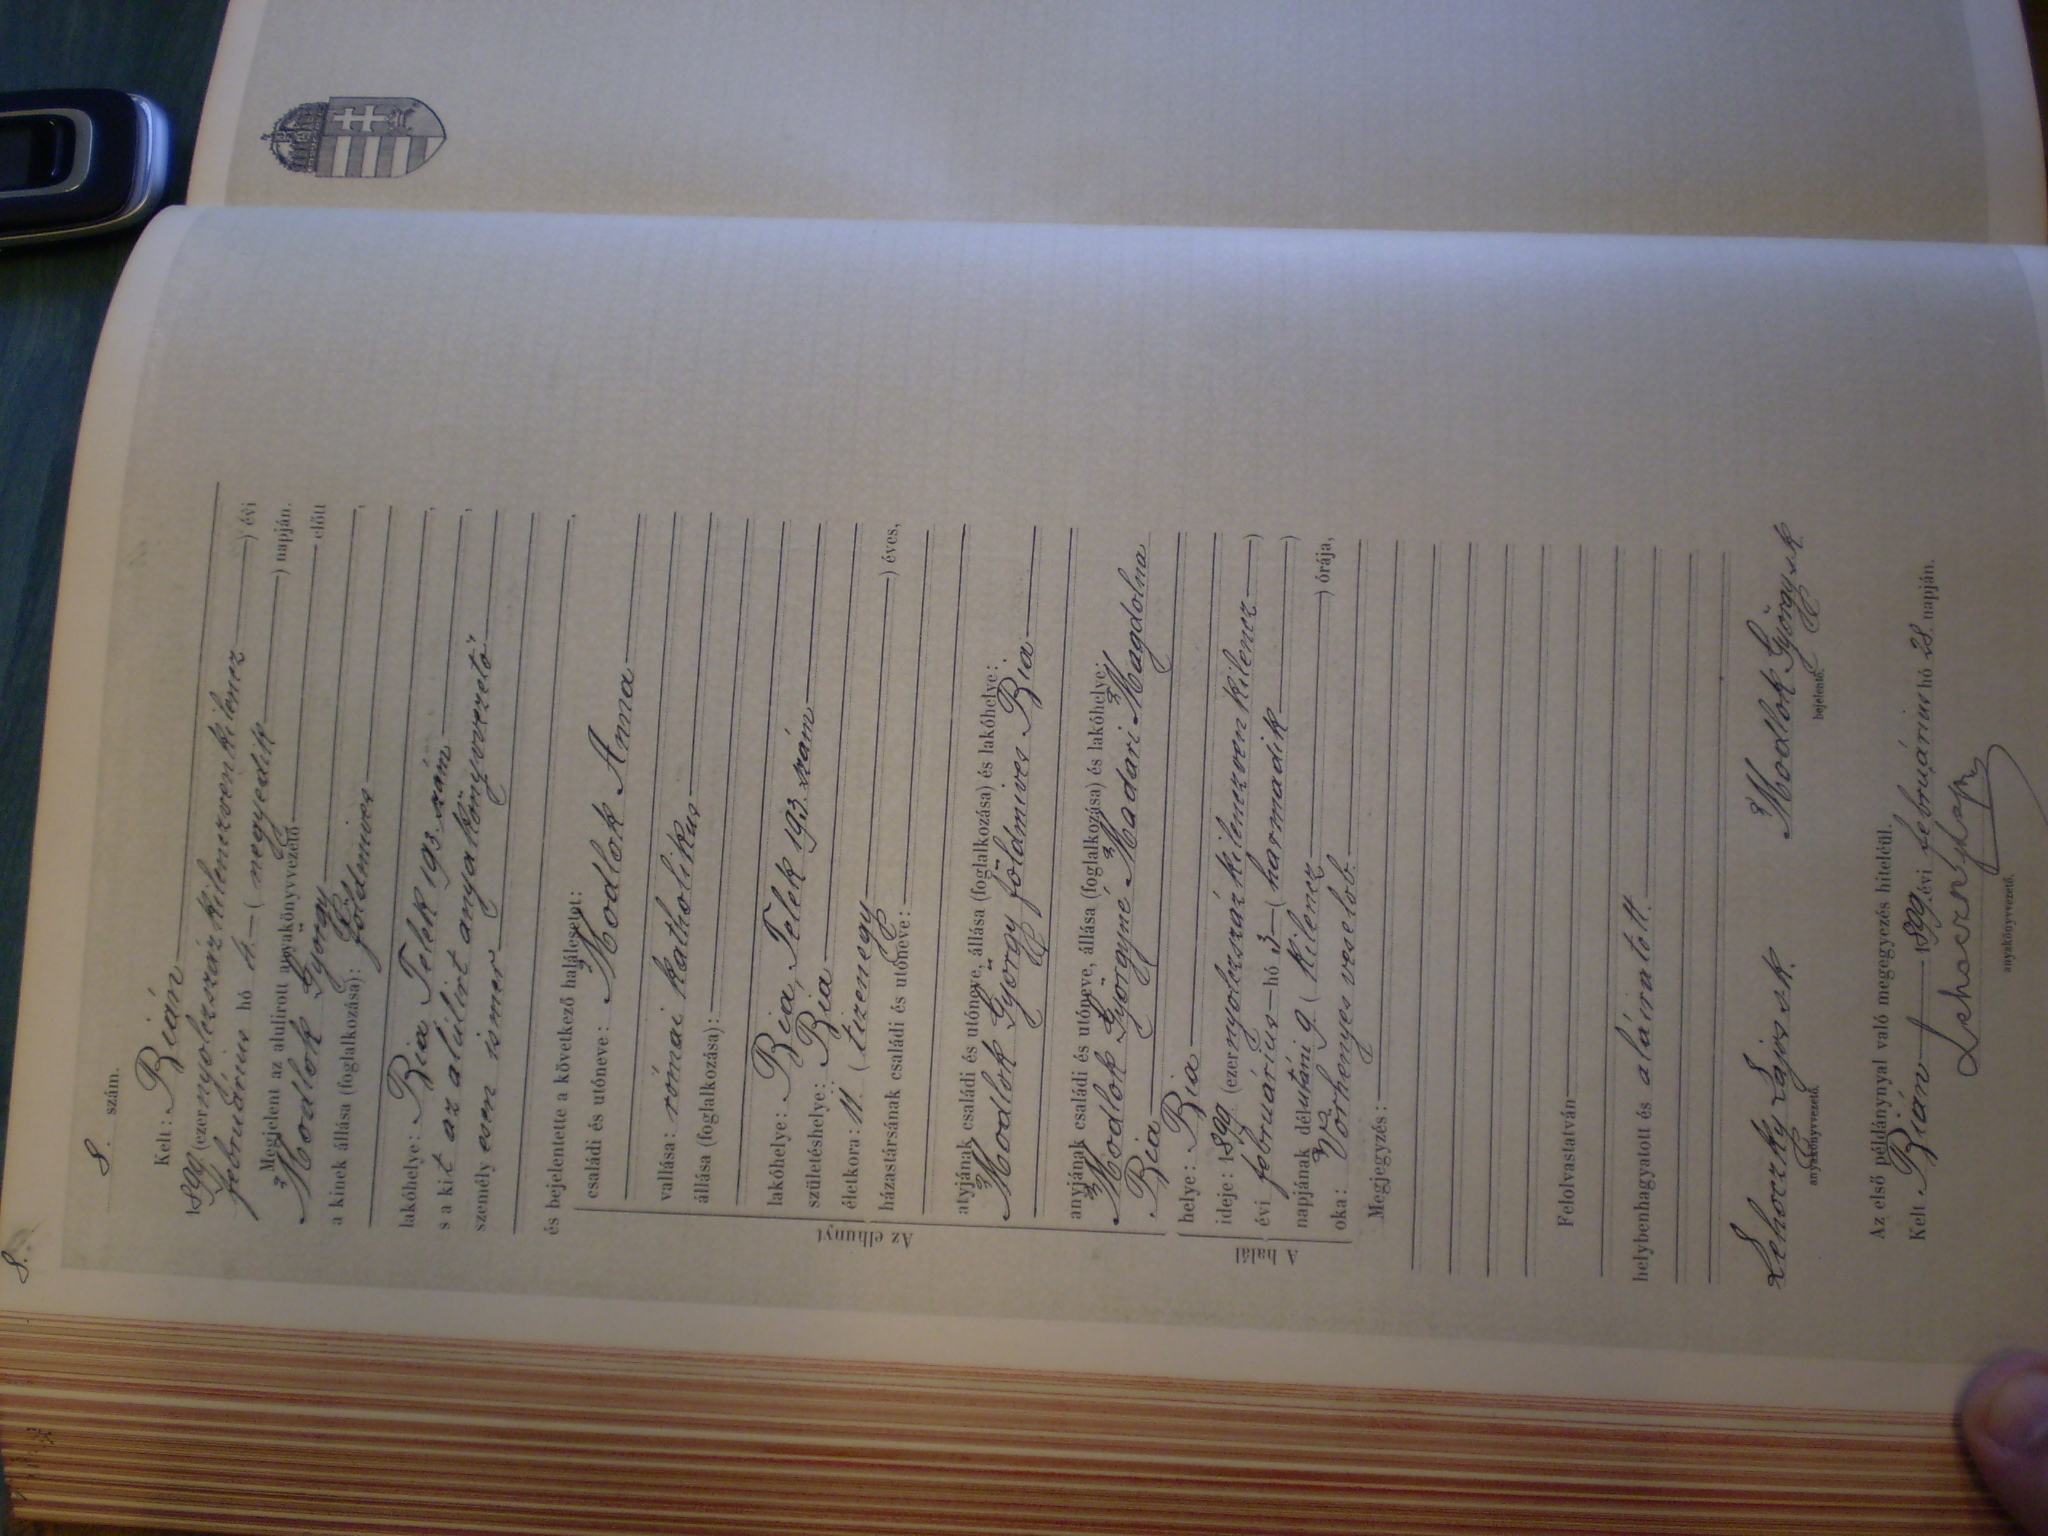 8.
8. szám.
Kelt: Bián
1899 (ezernyolczszázkilenczvenkilencz) évi
februárius hó 4. (negyedik) napján.
Megjelent az alulirott anyakönyvvezető előtt
Modlok György
a kinek állása (foglalkozása): földmives,
lakóhelye: Bia Telek 193. szám,
s a kit az alúlirt anyakönyvvezető,
személyesen ismer
és bejelentette a következő halálesetet:
családi és utóneve: Modlok Anna
vallása: római katholikus
állása (foglalkozása):
lakóhelye: Bia, Telek 193. szám
születéshelye: Bia
életkora: 11. (tizenegy) éves,
házastársának családi és utóneve:
Az elhunyt
atyjának családi és utóneve, állása (foglalkozása) és lakóhelye:
Modlok György földmives Bia
anyjának családi és utóneve, állása (foglalkozása) és lakóhelye:
Modlok Györgyné Madari Magdolna
Bia
helye: Bia
ideje: 1899 (ezernyolczszázkilenczvenkilencz)
évi februárius hó 3 (harmadik)
napjának délutáni 9 (kilencz) órája,
oka: Vörhenyes veselob.
A halál
Megjegyzés:
Felolvastatván
helybenhagyatott és aláiratott.
Lehoczky Lajos sk. Modlok György sk
anyakönyvvezető. bejelentő.
Az első példánynyal való megegyezés hiteléül.
Kelt Bián 1899. évi februárius hó 28. napján.
anyakönyvvezető.